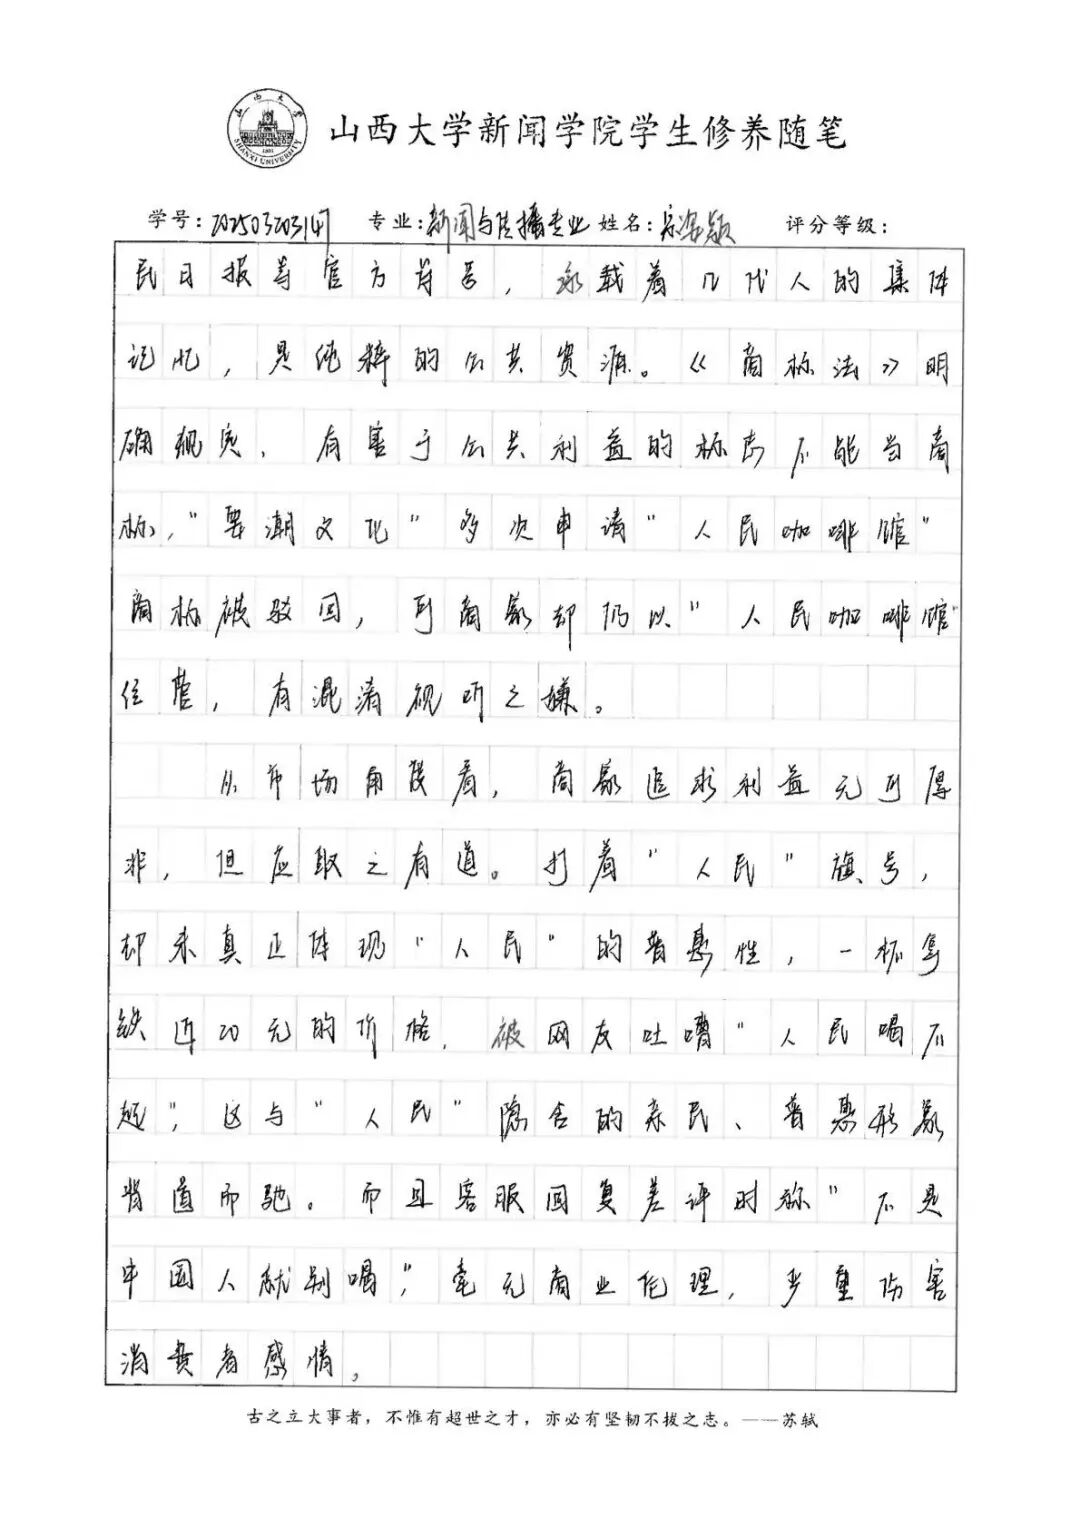 山西大学
SHANXI UNIVERSITY
1902
山西大学新闻学院学生修养随笔
学号：202503203147 专业：新闻与传播专业 姓名： 评分等级：
民日报等官方背景，承载着几代人的集体
记忆，是纯粹的公共资源。《商标法》明
确规定，有害于公共利益的标志不能当商
标，“要潮文化”多次申请“人民咖啡馆”
商标被驳回，可商家却仍以“人民咖啡馆”
经营，有混淆视听之嫌。
从市场角度看，商家追求利益无可厚
非，但应取之有道。打着“人民”旗号，
却未真正体现“人民”的普惠性，一杯拿
铁近20元的价格，被网友吐嘈“人民喝不
起”，这与“人民”隐含的亲民、普惠形象
背道而驰。而且客服回复差评时称“不是
中国人就别喝”，毫无商业伦理，严重伤害
消费者感情。
古之立大事者，不惟有超世之才，亦必有坚韧不拔之志。——苏轼